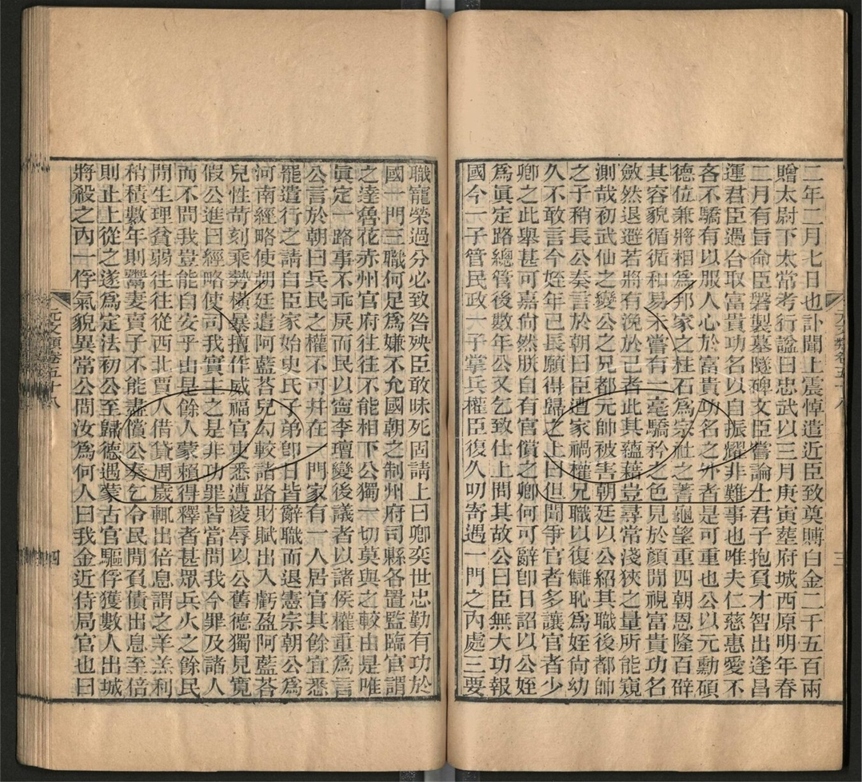 二年二月七日也訃聞上震悼遣近臣致奠賻白金二千五百兩
贈太尉下太常考行諡曰忠武以三月庚寅葬府城西原明年春
二月有旨命臣磐製墓隧碑文臣嘗論士君子抱負才智出逢昌
運君臣遇合取富貴功名以自振耀非難事也唯夫仁慈惠愛不
吝不驕有以服人心於富貴功名之外者是可重也公以元勳碩
德位兼將相為邦家之柱石為宗社之蓍龜望重四朝恩隆百辟
其容貌循循和易未嘗有一毫驕矜之色見於顏間視富貴功名
斂然退避若將有浼於己者此其蘊藉豈尋常淺狹之量所能窺
測哉初武仙之變公之兄都元帥被害朝廷以公紹其職後都帥
之子稍長公奏言於朝曰臣遭家禍權兄職以復讎恥為姪尙幼
久不敢言今姪年已長願得歸之上曰但聞爭官者多讓官者少
卿之此舉甚可嘉尙然朕自有官償之卿何可辭卽日詔以公姪
為眞定路總管後數年公又乞致仕上問其故公曰臣無大功報
國今一子管民政一子掌兵權臣復久叨寄遇一門之內處三要
元文類卷五十八
三
職寵榮過分必致咎殃臣敢味死固請上曰卿奕世忠勤有功於
國一門三職何足為嫌不允國朝之制州府司縣各置監臨官謂
之達魯花赤州官府往往不能相下公獨一切莫與之較由是唯
眞定一路事不乖戾而民以寧李璮變後議者以諸侯權重為言
公言於朝曰兵民之權不可幷在一門家有一人居官其餘宜悉
罷遣行之請自臣家始史氏子弟卽日皆辭職而退憲宗朝公為
河南經略使朝廷遣阿藍荅兒勾較諸路財賦出入虧盈阿藍荅
兒性苛刻乘勢橫暴擅作威福官吏悉遭淩辱以公舊德獨見寬
假公進曰經略使司我實主之是非功罪皆當問我今罪及諸人
而不問我豈能自安乎由是餘人蒙賴得釋者甚眾兵火之餘民
閒生理貧弱往往從西北賈人借貸周歲輒出倍息謂之羊羔利
稍積數年則鬻妻賣子不能盡償公奏乞令民閒負債出息至倍
則止上從之遂為定法初公至歸德遇蒙古官驅俘獲數人出城
將殺之內一俘氣貌異常公問汝為何人曰我金近侍局官也曰
元文類卷五十八
四